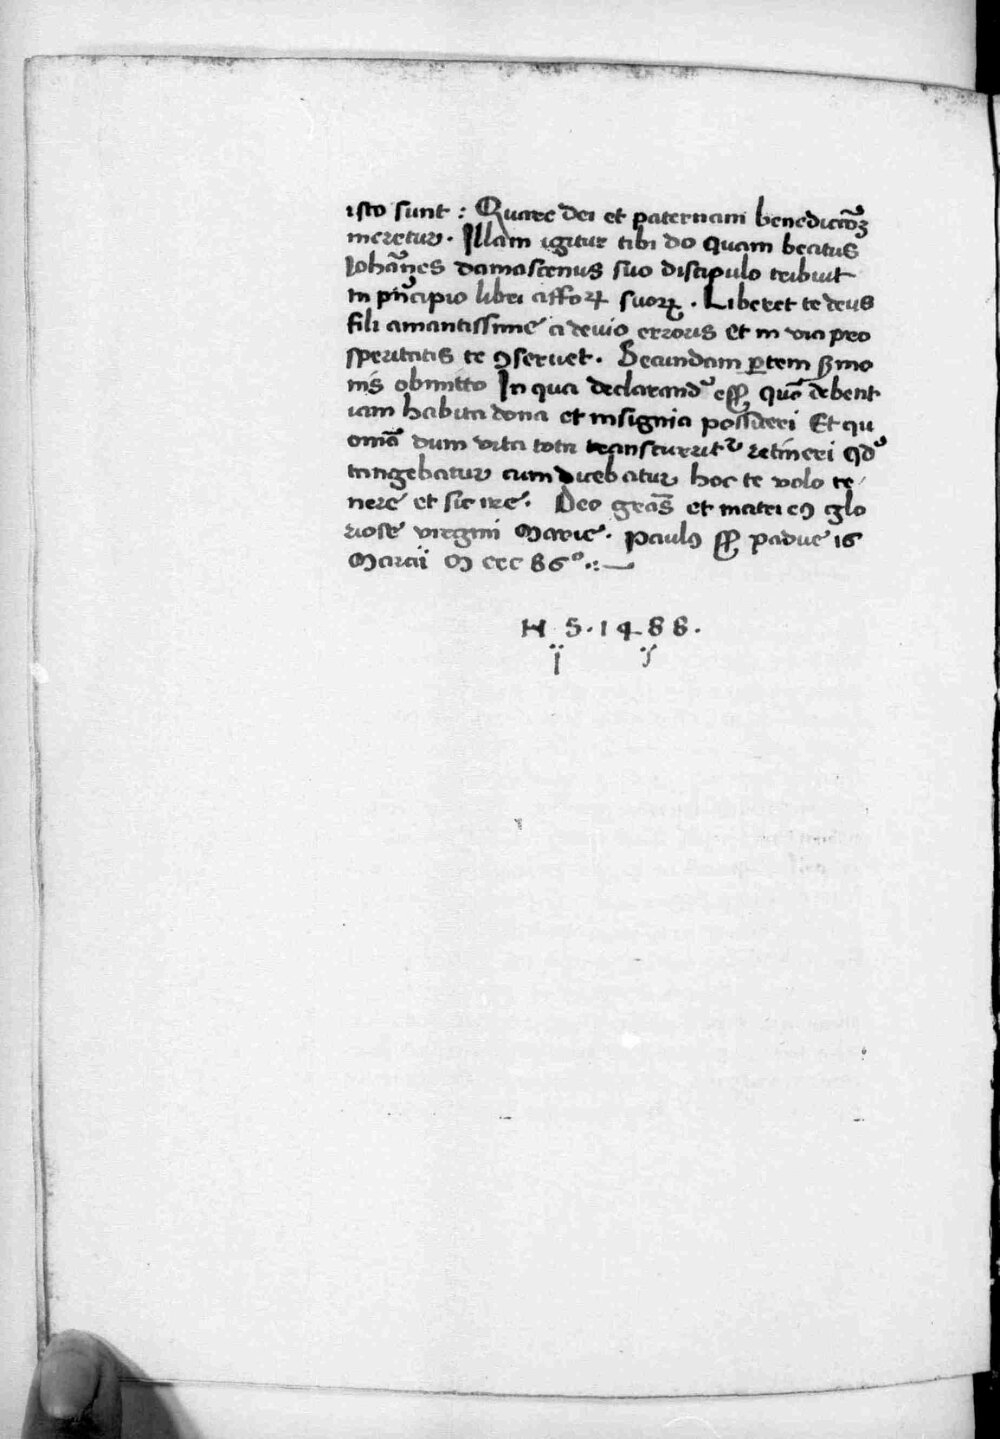 isto sunt : Quare dei et paternam benedictōꝫ
meretur . Illam igitur tibi do quam beatus
Johān̄es damascenus suo discipulo tribuit
In prīcipio libri affoꝝ suoꝝ . Liberet te deus
fili amantissime a deuio erroris et in via pro
speritatis te ꝯseruet . Secundam ꝑtem
nis obmitto In qua declarand' quō debent
iam habita dona et insignia possideri Et qu
omō dum vita tota transcurrit' retineri qd'
tangebatur cum dicebatur hoc te volo te/
nere et sic ire . Deo grās et matri eꝯ glo
riose virgini Marie . Paulꝯ padue 16
Marcii M ccc 86° .:—
H 5 . 1488 .